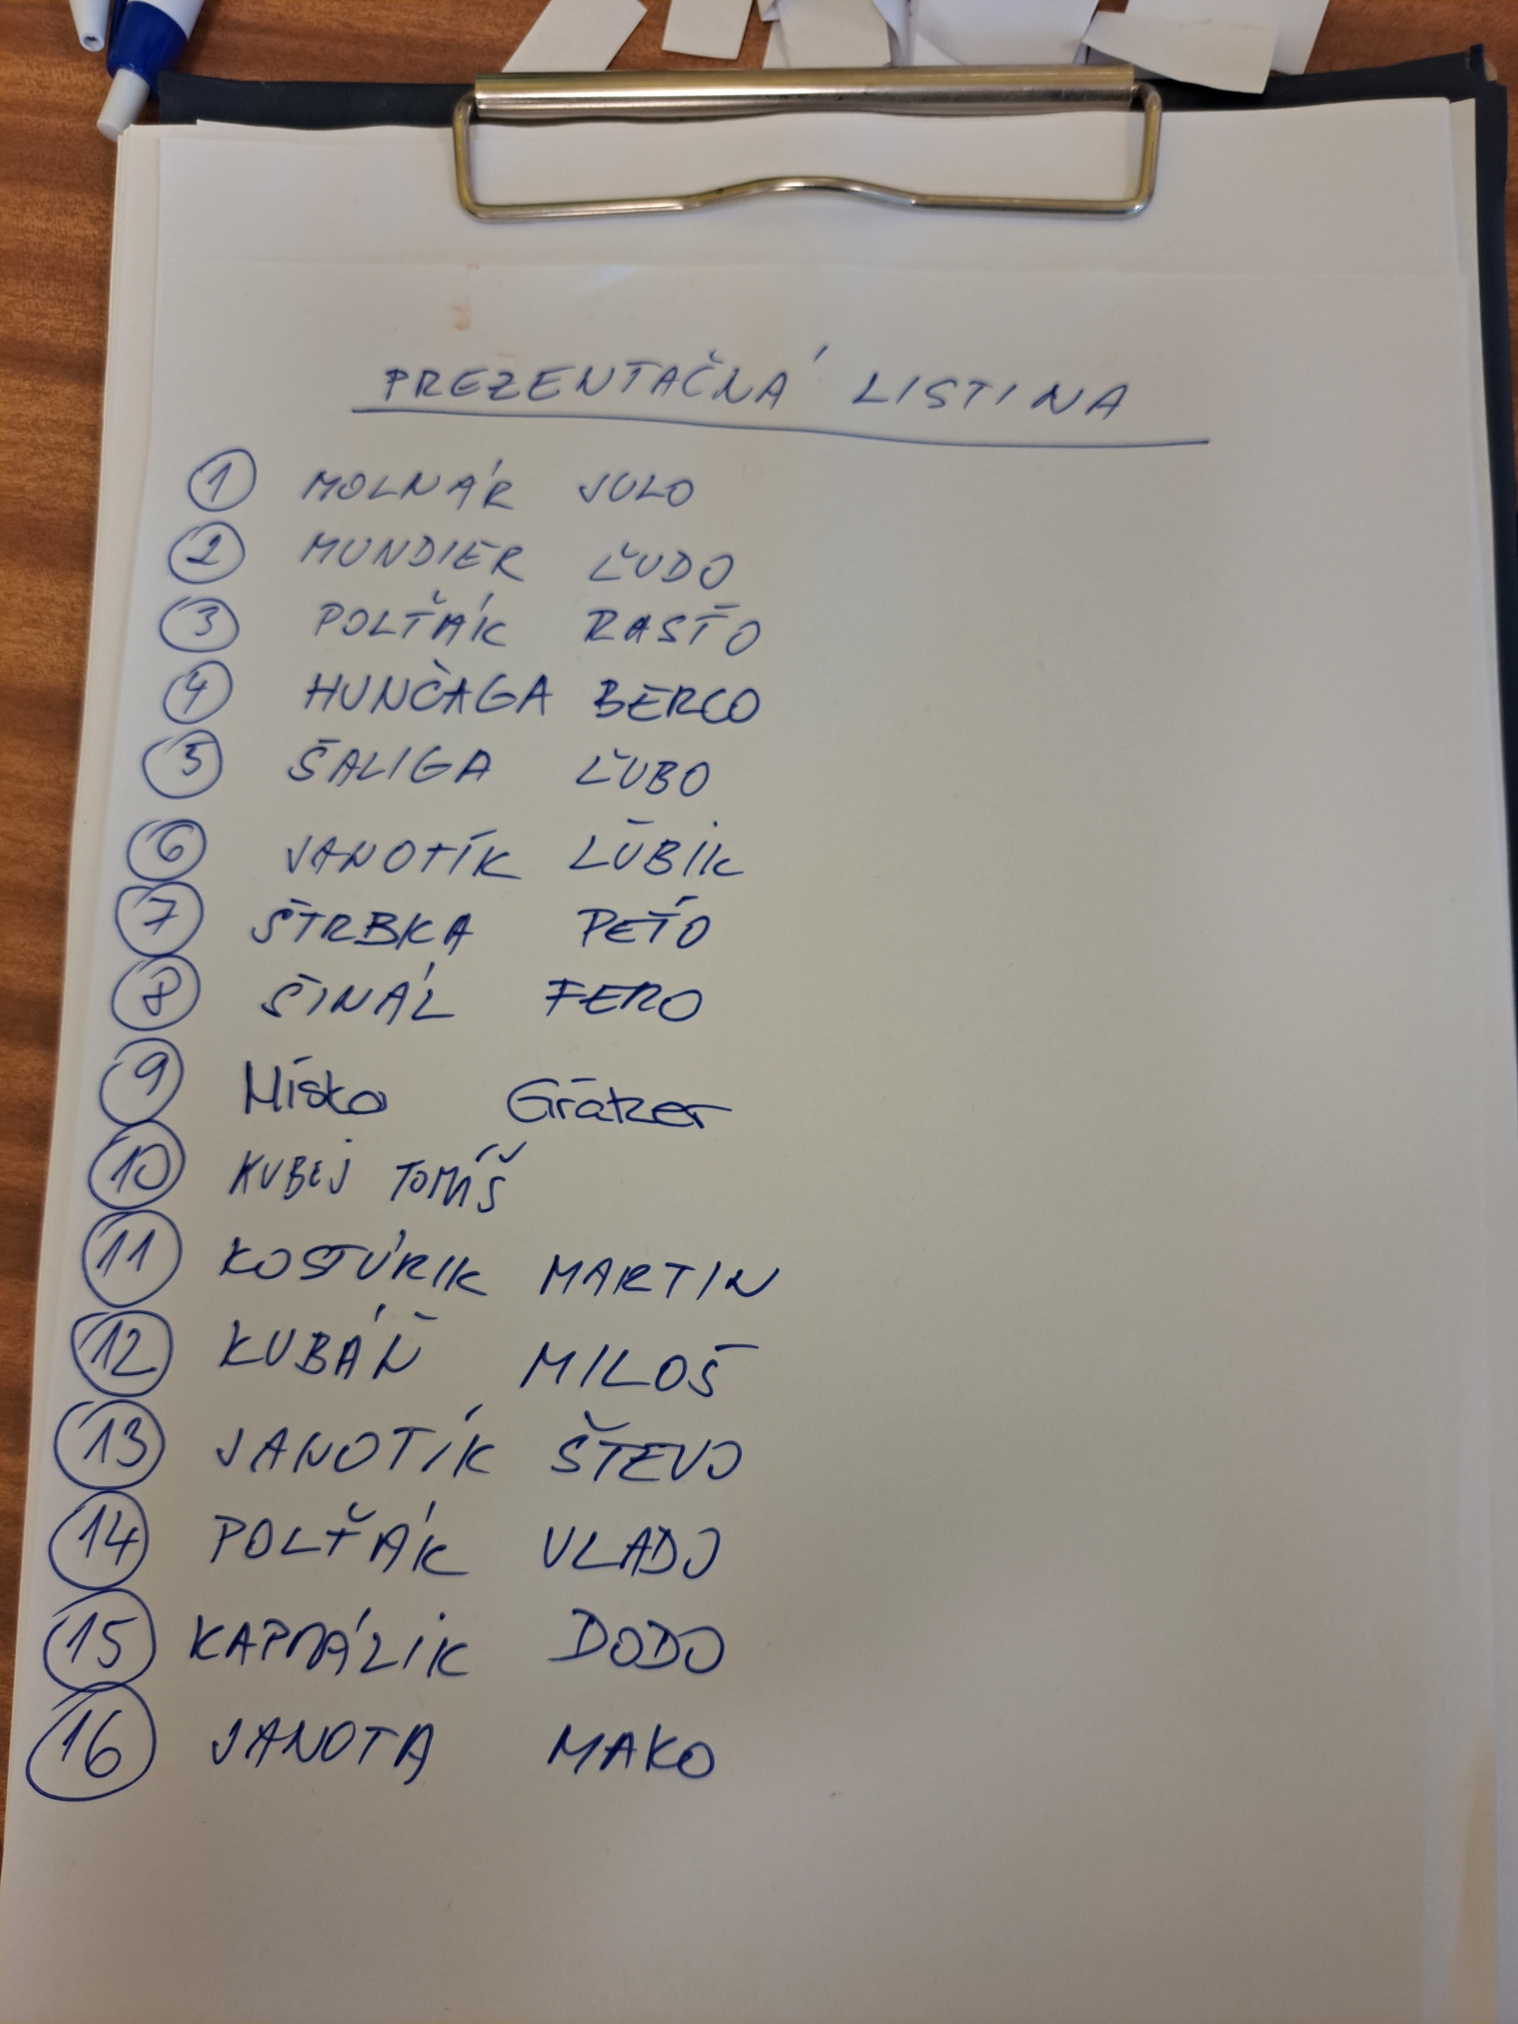 PREZENTAČNÁ LISTINA
1 MOLNÁR JULO
2 MUNDIER ĽUDO
3 POLŤÁK RASŤO
4 HUNČAGA BERCO
5 ŠALIGA ĽUBO
6 JANOTÍK ĽUBIK
7 ŠTRBKA PEŤO
8 ŠINÁL FERO
9 Miško Grätzer
10 KUBEJ TOMÁŠ
11 KOSTÚRIK MARTIN
12 KUBÁŇ MILOŠ
13 JANOTÍK ŠTEVO
14 POLŤÁK VLADO
15 KAPRÁLIK DODO
16 JANOTA MAKO